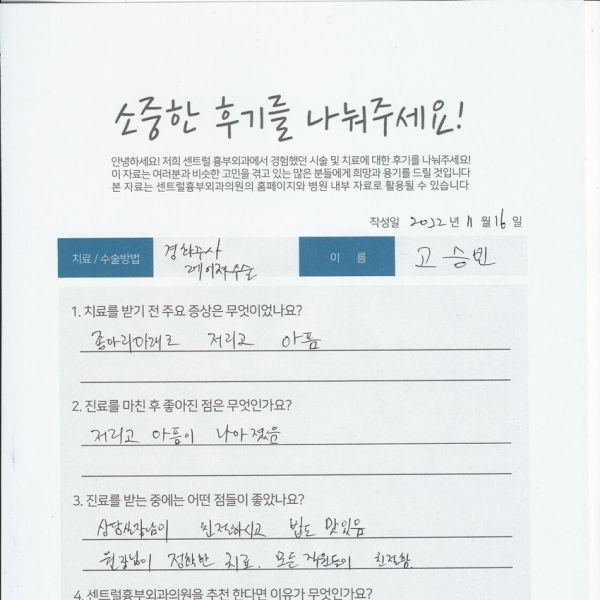 소중한 후기를 나눠주세요!
안녕하세요! 저희 센트럴 흉부외과에서 경험했던 시술 및 치료에 대한 후기를 나눠주세요!
이 자료는 여러분과 비슷한 고민을 겪고 있는 많은 분들에게 희망과 용기를 드릴 것입니다
본 자료는 센트럴흉부외과의원의 홈페이지와 병원 내부 자료로 활용될 수 있습니다
작성일 2022년 11월 16일
치료 / 수술방법 경화주사 이 름 고승빈
레이저수술
1. 치료를 받기 전 주요 증상은 무엇이었나요?
종아리아래로 저리고 아픔
2. 진료를 마친 후 좋아진 점은 무엇인가요?
저리고 아픔이 나아졌음
3. 진료를 받는 중에는 어떤 점들이 좋았나요?
상담실장님이 친절하시고 밥도 맛있음
원장님이 정확한 치료. 모든 직원들이 친절함
4. 센트럴흉부외과의원을 추천 한다면 이유가 무엇인가요?